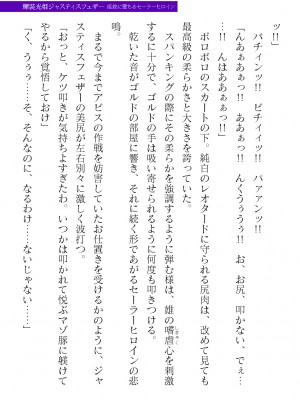 ジャスティスフェザー に堕ちるセーラーヒロイン
ッ!!」
パチィンッ!! ビチィィッ!! パァァンッ!!
「んあぁあぁっ!! あぁぁっ!! んくぅうぅぅ!! お、お尻、叩かない、でぇ…
…!! んはぁああぁぁっ!!」
ボロボロのスカートの下。純白のレオタードに守られる尻肉は、改めて見ても
最高級の柔らかさと大きさを誇っていた。
スパンキングの際にその柔らかさを強調するように弾む様は、雄の嗜虐心を刺激
するに十分で、ゴルドの手は吸い寄せられるように何度も叩きつける。
乾いた音がゴルドの部屋に響き、それに続く形であがるセーラーヒロインの悲
鳴。
まるで今までアビスの作戦を妨害していたお仕置きを受けるかのように、ジャ
スティスフェザーの美尻が左右別々に激しく波打つ。
「おっと、ケツ叩きが気持ちよすぎたわ。いつかは叩かれて悦ぶマゾ豚に躾けて
やるから覚悟しておけ」
「く、うぅぅ……そ、そんなのに、なるわけ……ないじゃない……」